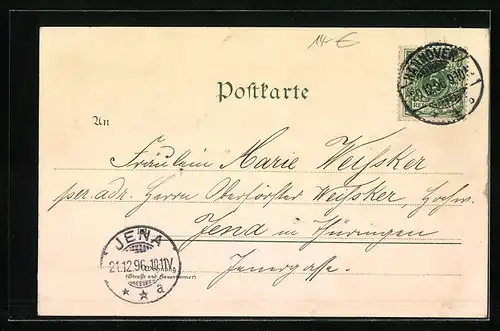 14 €
Postkarte
HANNOVER
An
Fräulein Marie Weißker
per. adr. Herrn Oberförster Weißker, Hochw.
Jena in Thüringen
Jenergasse.
JENA
21.12.96.10-11V.
(Straße und Hausnummer)
* * a